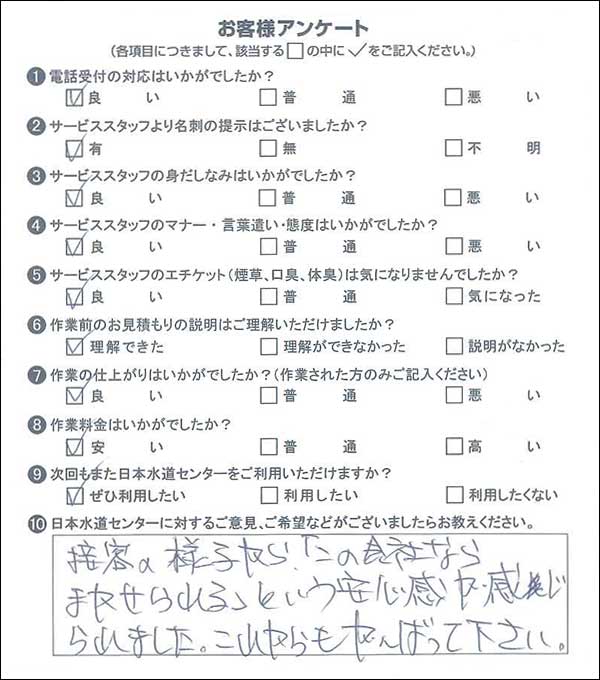 お客様アンケート
(各項目につきまして、該当する□の中に✓をご記入ください。)
❶電話受付の対応はいかがでしたか?
☑良い □普通 □悪い
❷サービススタッフより名刺の提示はございましたか?
☑有 □無 □不明
❸サービススタッフの身だしなみはいかがでしたか?
☑良い □普通 □悪い
❹サービススタッフのマナー・言葉遣い・態度はいかがでしたか?
☑良い □普通 □悪い
❺サービススタッフのエチケット(煙草、口臭、体臭)は気になりませんでしたか?
☑良い □普通 □気になった
❻作業前のお見積もりの説明はご理解いただけましたか?
☑理解できた □理解ができなかった □説明がなかった
❼作業の仕上がりはいかがでしたか?(作業された方のみご記入ください)
☑良い □普通 □悪い
❽作業料金はいかがでしたか?
☑安い □普通 □高い
❾次回もまた日本水道センターをご利用いただけますか?
☑ぜひ利用したい □利用したい □利用したくない
❿日本水道センターに対するご意見、ご希望などがございましたらお教えください。
接客の様子から「この会社なら
まかせられる」という安心感が感じ
られました。これからもがんばって下さい。